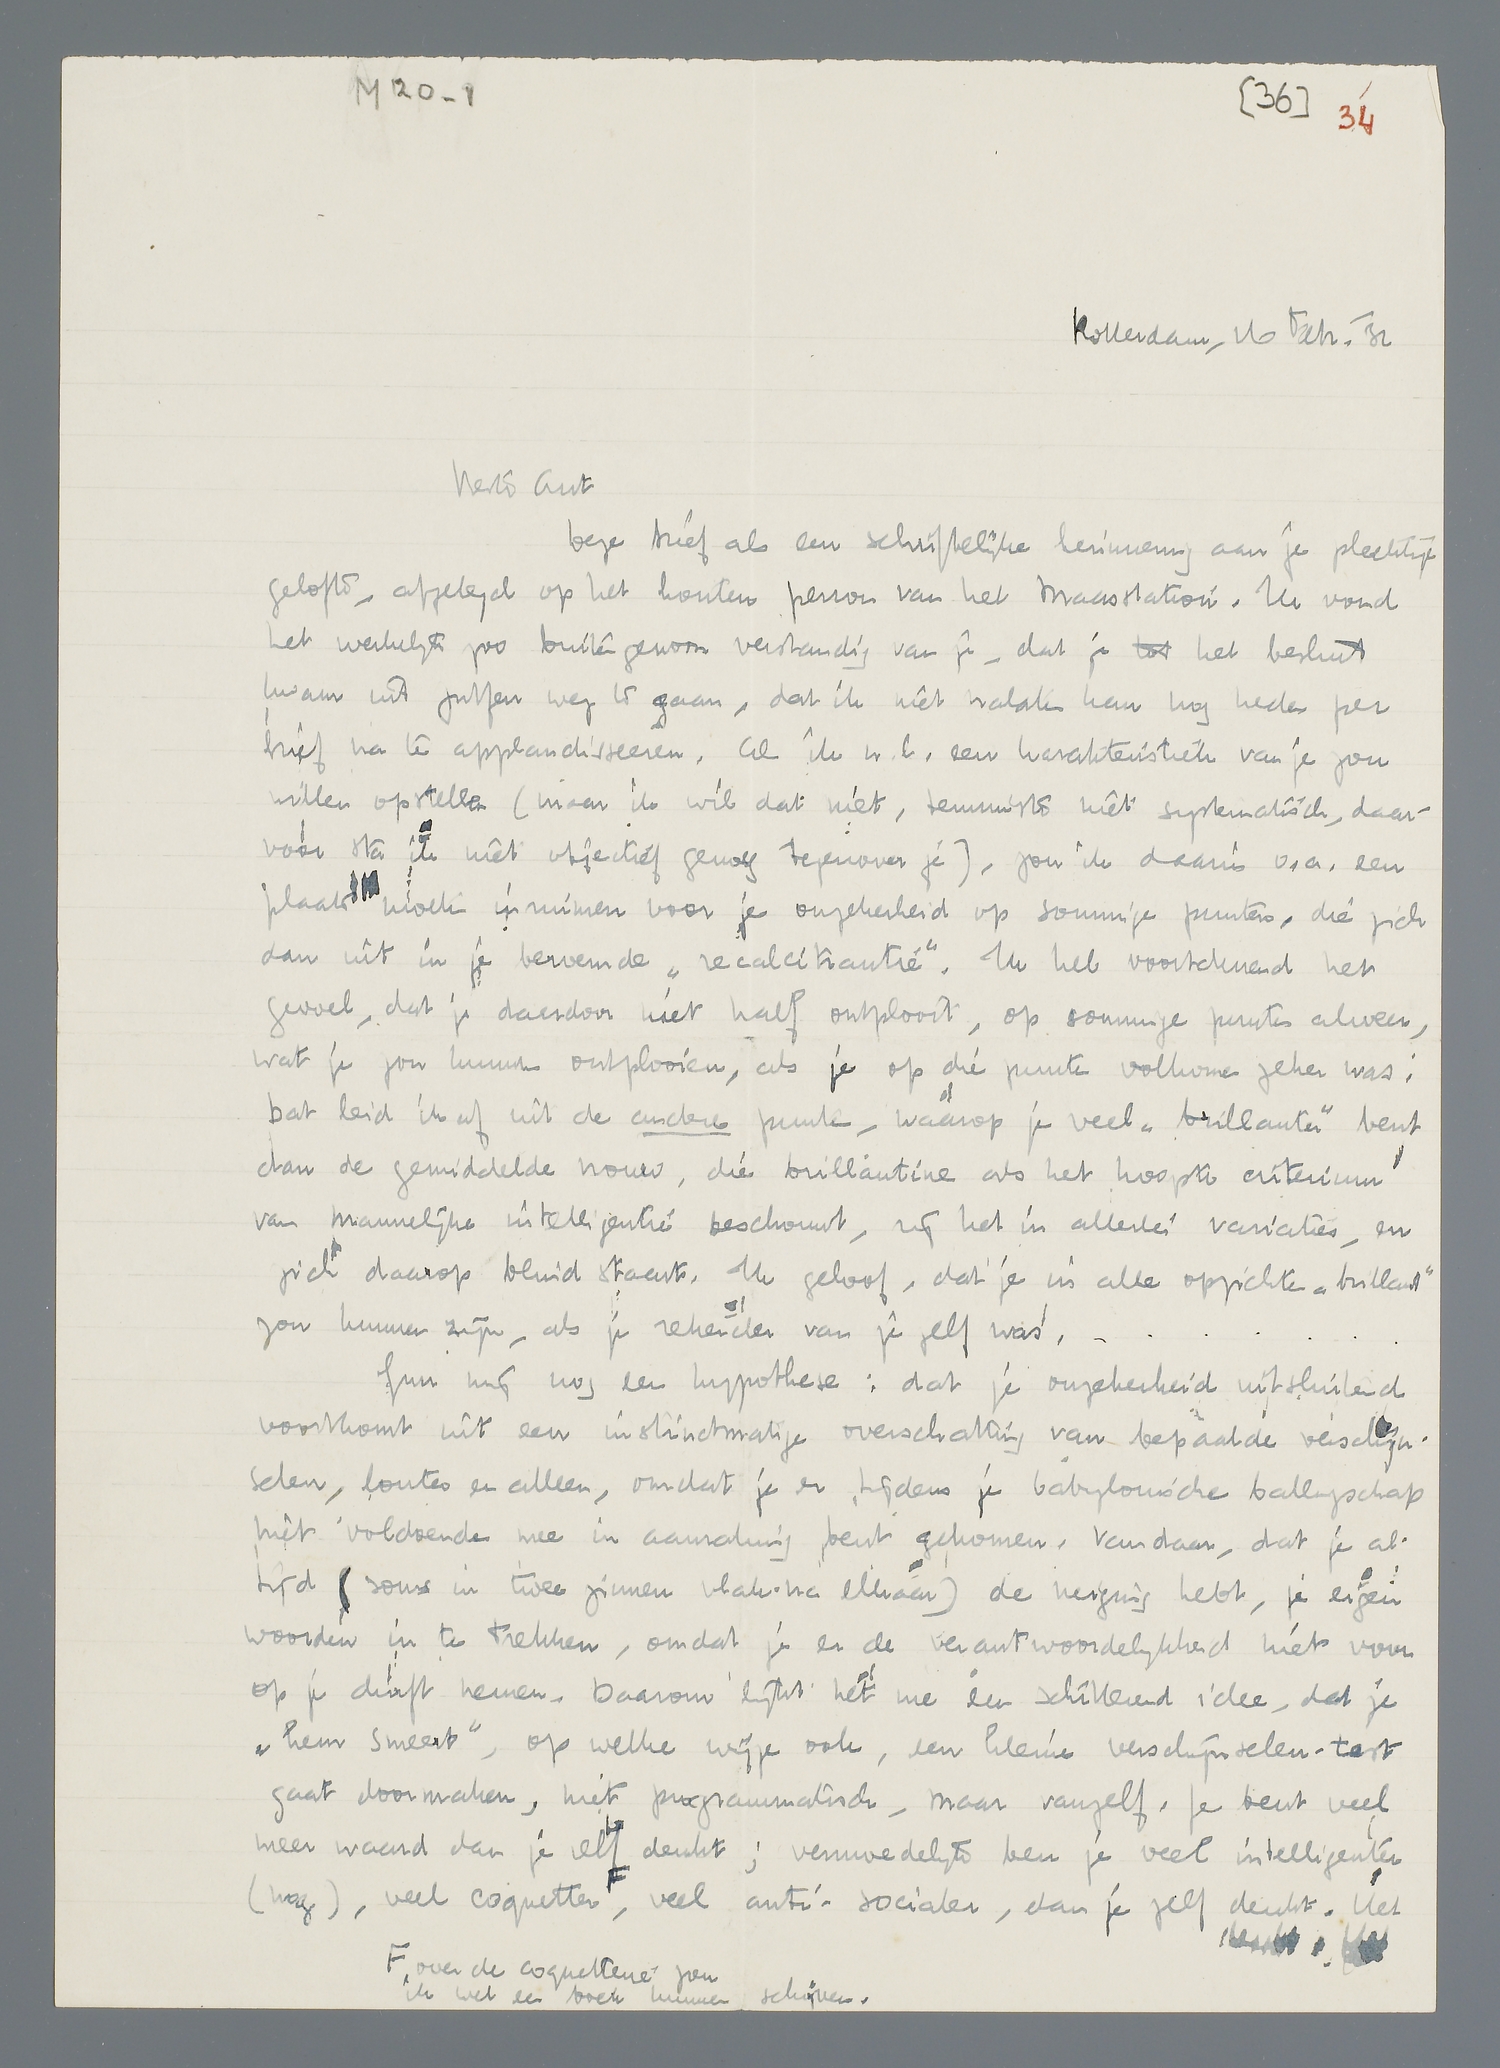 M 20-1
[36] 34
Rotterdam, 16 Febr. '32
Beste Ant
Deze brief als een schriftelijke herinnering aan je plechtige
gelofte, afgelegd op het houten perron van het Maasstation. Ik vond
het werkelijk zoo buitengewoon verstandig van je, dat je tot het besluit
kwam uit Zutfen weg te gaan, dat ik niet nalaten kan nog heden per
brief na te applaudisseeren. Als ik n.l. een karakteristiek van je zou
willen opstellen (maar ik wil dat niet, tenminste niet systematisch, daar-
voor sta ik niet objectief genoeg tegenover je), zou ik daarin o.a. een
plaats moeten inruimen voor je onzekerheid op sommige punten, die zich
dan uit in je beroemde „recalcitrantie". Ik heb voortdurend het
gevoel, dat je daardoor niet half ontplooit, op sommige punten alweer,
wat je zou kunnen ontplooien, als je op die punten volkomen zeker was;
dat leid ik af uit de andere punten, waarop je veel „brillanter" bent
dan de gemiddelde vrouw, die brillantine als het hoogste criterium
van mannelijke intelligentie beschouwt, zij het in allerlei variaties, en
zich daarop blind staart. Ik geloof, dat je in alle opzichten „brillant"
zou kunnen zijn, als je zekerder van je zelf was. - . . . . . .
Gun mij nog een hypothese: dat je onzekerheid uitsluitend
voortkomt uit een instinctmatige overschatting van bepaalde verschijn-
selen, louter en alleen, omdat je er tijdens je babylonische ballingschap
niet voldoende mee in aanraking bent gekomen. Vandaar, dat je al-
tijd (soms in twee zinnen vlak-na elkaar) de neiging hebt, je eigen
woorden in te trekken, omdat je er de verantwoordelijkheid niet voor
op je durft nemen. Daarom lijkt het me een schitterend idee, dat je
„hem smeert", op welke wijze ook, een kleine verschijnselen-test
gaat doormaken, niet programmatisch, maar vanzelf. Je bent veel
meer waard dan je zelf denkt; vermoedelijk ben je veel intelligenter
(nog), veel coquetter F, veel anti-socialer, dan je zelf denkt. Het
F, over de coquetterie zou
ik wel een boek kunnen schrijven.